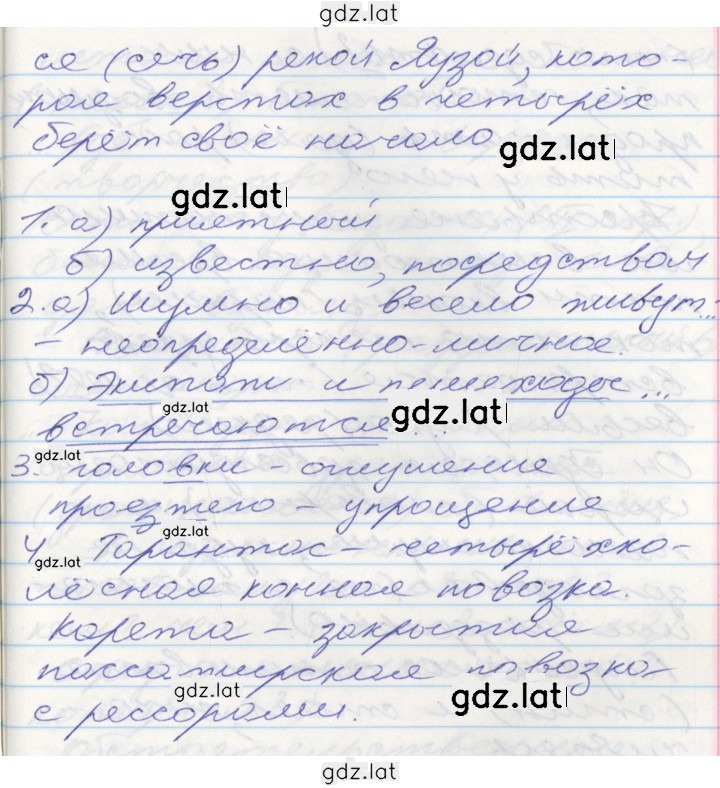 gdz.lat
ся (сечь) рекой Яузой, кото-
рая верстах в четырёх
берёт своё начало
gdz.lat
gdz.lat
1. а) приятный
б) известно, посредством
2. а) Шумно и весело живут...
- неопределённо-личное.
б) Экипажи и пешеходы...
gdz.lat
встречаются...
gdz.lat
gdz.lat
3. головки - оглушение
проезжего - упрощение
gdz.lat
4. Тарантас - четырёхко-
лёсная конная повозка.
Карета - закрытая
пассажирская повозка
gdz.lat
gdz.lat
с рессорами.
gdz.lat